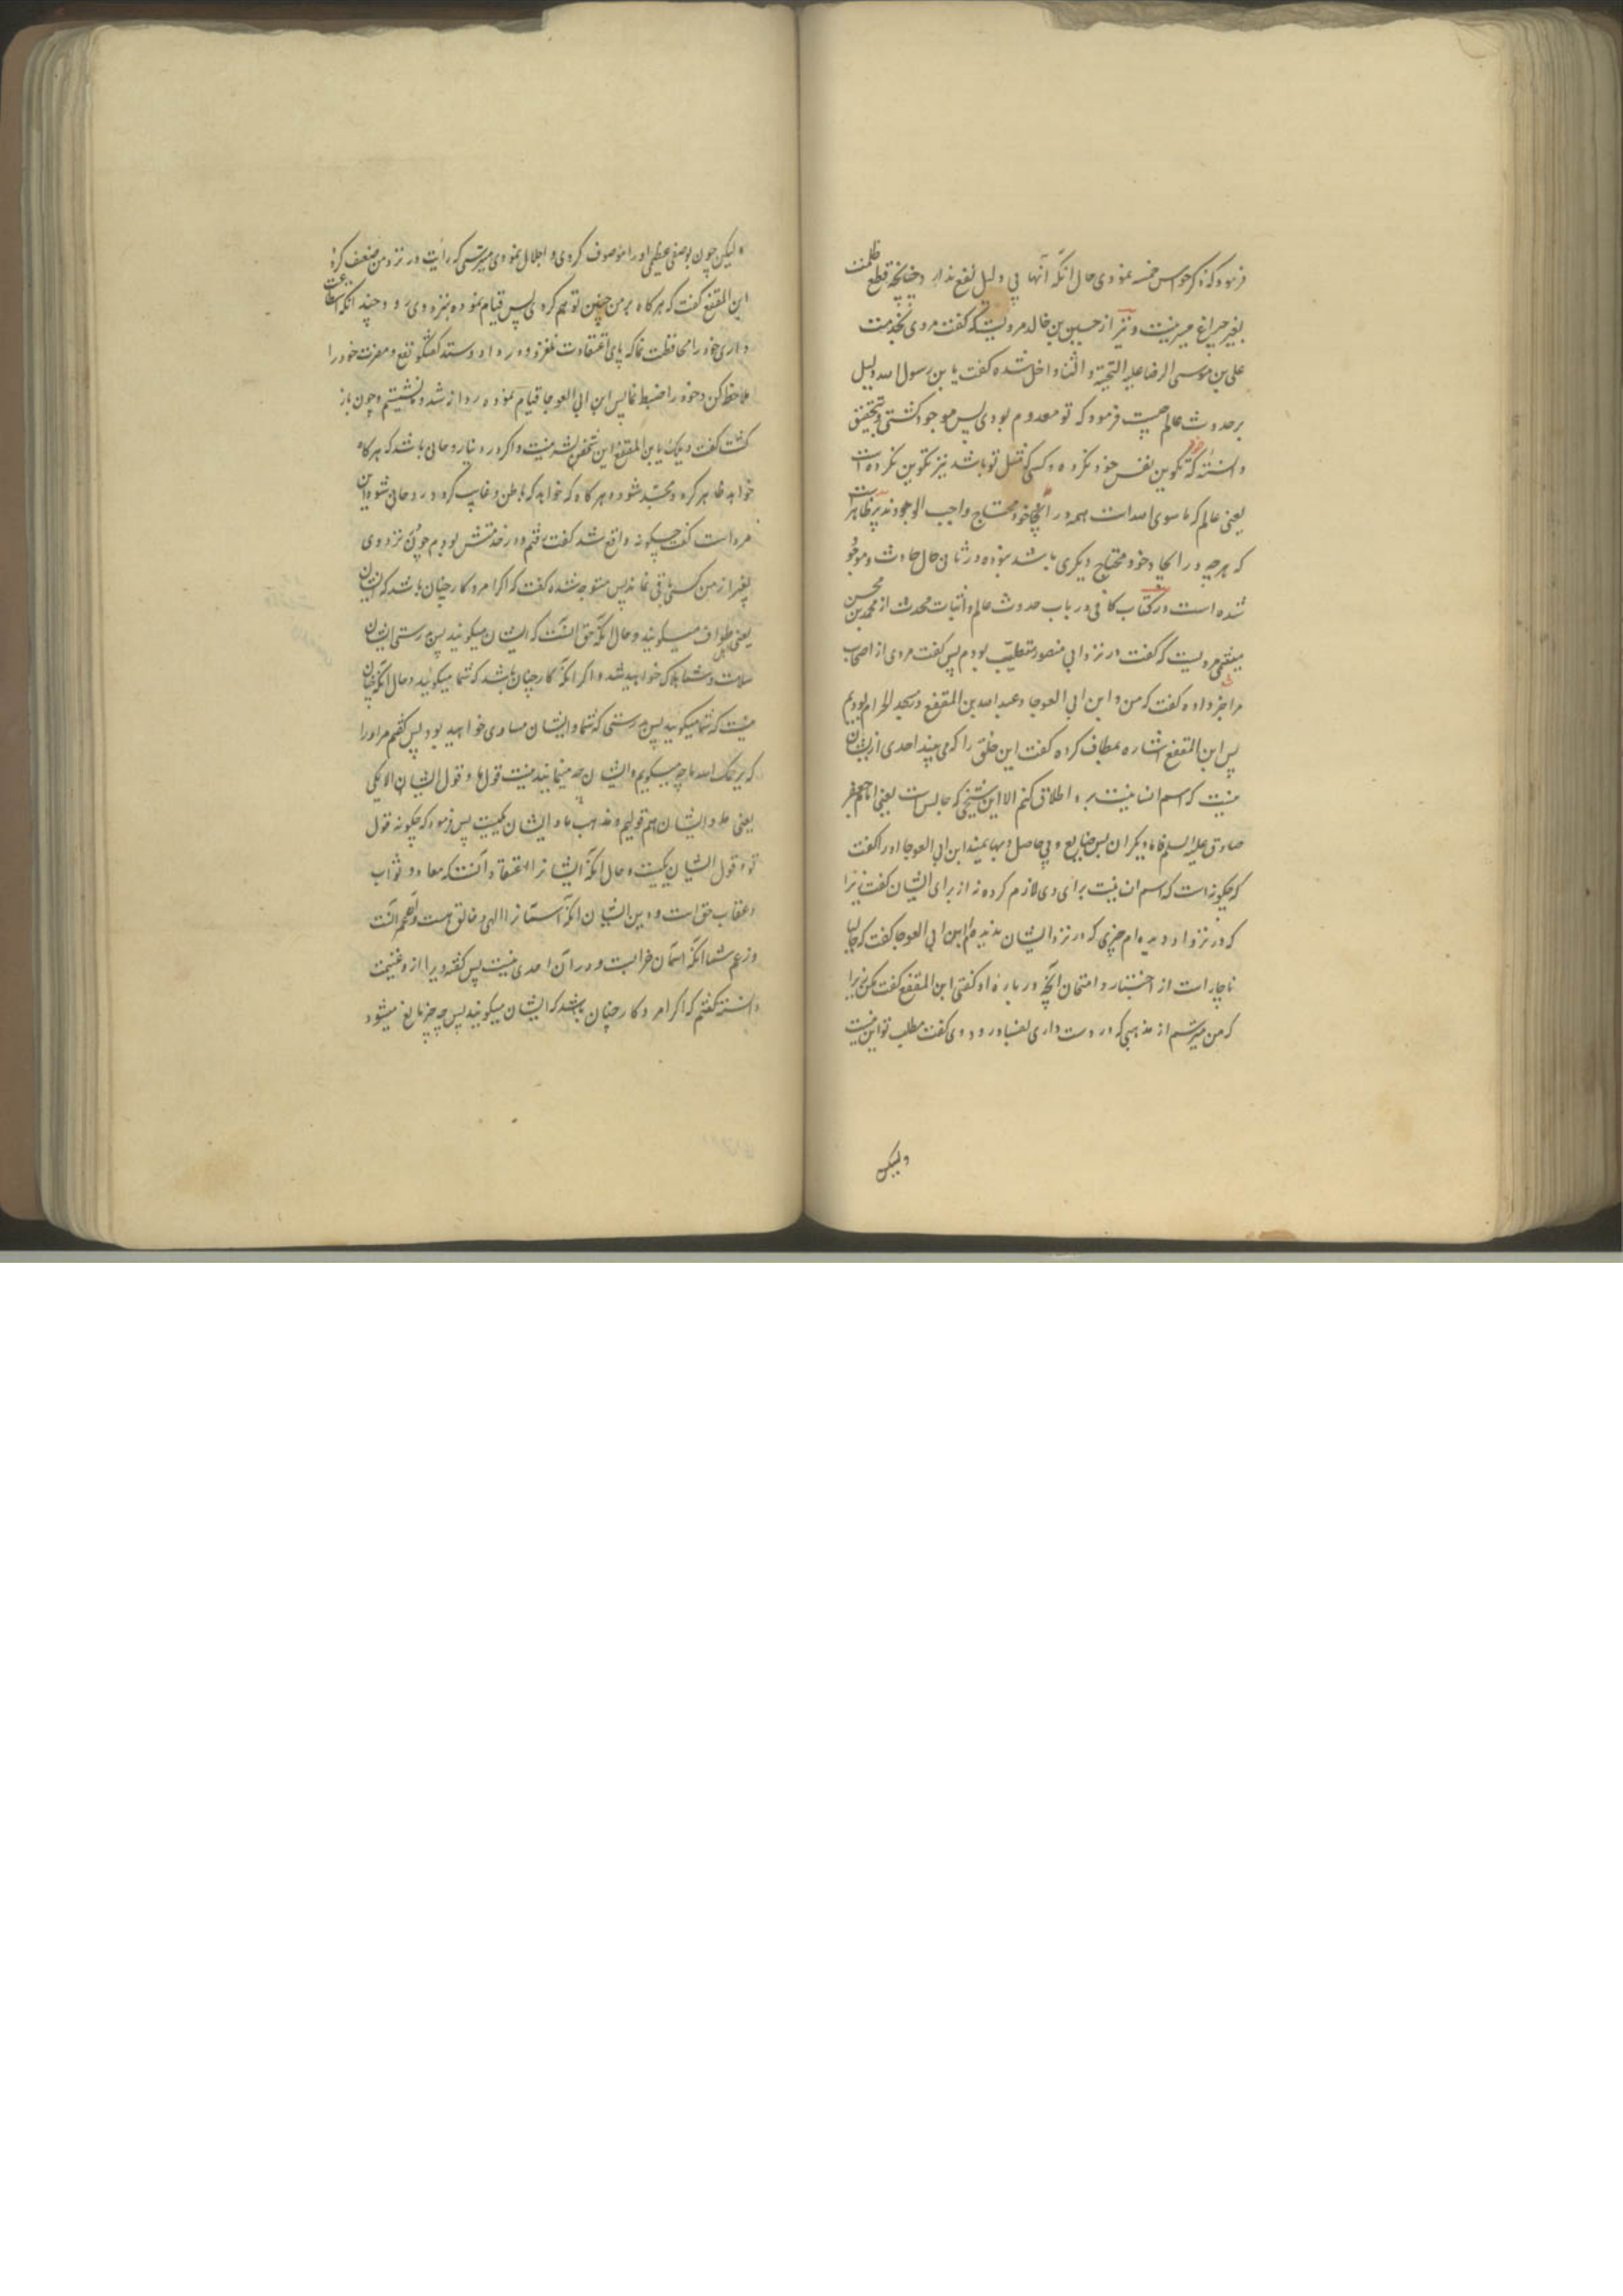 فرمود که ذکر حواس خمسه نمودی حال آنکه آنها بی دلیل نفع ندارد چنانچه قطع ظلمت
بغیر چراغ میسر نیست و نیز از حسین بن خالد مرویست که گفت مردی بخدمت
علی بن موسی الرضا علیه التحیة و الثنا داخل شده گفت یا بن رسول الله دلیل
بر حدوث عالم چیست فرمود که تو معدوم بودی پس موجود گشتی و بتحقیق
دانستهٔ که تکوین نفس خود نکرده و کسی که مثل تو باشد نیز تکوین نکرده است
یعنی عالم که ما سوی الله است همه در ایجاد خود محتاج واجب الوجودند پر ظاهر است
که هر چه در ایجاد خود محتاج دیگری باشد نبوده در ثانی حال حادث و موجود
شده است در کتاب کافی در باب حدوث عالم و اثبات محدث از محمد بن محسن
میثمی مرویست که گفت در نزد ابی منصور متطبب بودم پس گفت مردی از اصحاب
مرا خبر داده گفت که من و ابن ابی العوجا و عبد الله بن المقفع در مسجد الحرام بودیم
پس ابن المقفع اشاره بمطاف کرده گفت این خلق را که می بیند احدی از ایشان
نیست که اسم انسانیت بر او اطلاق کنم الا این شیخی که جالس است یعنی امام جعفر
صادق علیه السلم فاما دیگران پس ضایع و بی حاصل و بهایمند ابن ابی العوجا او را گفت
که چگونه است که اسم انسانیت برای وی لازم کرده نه از برای ایشان گفت زیرا
که در نزد او دیده ام چیزی که در نزد ایشان ندیده ام ابن ابی العوجا گفت که حالیا
ناچار است از اختبار و امتحان آنچه در باره او گفتی ابن المقفع گفت مکن زیرا
که من میترسم از مذهبی که در دست داری بفساد رود وی گفت مطلب تو این نیست
ولیکن
ولیکن چون بوصفی عظیم او را موصوف کردی و اجلال نمودی میترسی که رایت در نزد من ضعف گیرد
ابن المقفع گفت که هر گاه بر من چنین توهم کردی پس قیام نموده بنزد وی رو و چند آنکه استطاعت
داری خود را محافظت نما که پای اعتقادت نلغزد و در داد و ستد گفتگو نفع و مضرت خود را
ملاحظه کن و خود را ضبط نما پس ابن ابی العوجا قیام نموده روانه شد و نشستیم و چون باز
گشت گفت ویلک یا بن المقفع این شخص بشر نیست و اگر در دنیا روحانی باشد که هر گاه
خواهد ظاهر گردد و مجسّد شود و هر گاه که خواهد که باطن و غایب گردد روحانی شود این
مرد است گفت چگونه واقع شد گفت رفتم و در خدمتش بودم چون نزد وی
بغیر از من کسی باقی نماند پس متوجه شده گفت که اگر امر و کار چنان باشد که ایشان
یعنی اهل طواف میگویند و حال آنکه حق آنست که ایشان میگویند پس بدرستی ایشان
سلامت و شما هلاک خواهید شد و اگر آنکه کار چنان باشد که شما میگوئید و حال آنکه چنان
نیست که شما میگوئید پس بدرستی که شما و ایشان مساوی خواهید بود پس گفتم مر او را
که یرحمک الله ما چه میگویم و ایشان چه میفرمایند نیست قول ما و قول ایشان الا یکی
یعنی ما و ایشان هم قولیم و مذهب ما و ایشان یکیست پس فرمود که چگونه قول
تو و قول ایشان یکیست و حال آنکه ایشانرا اعتقاد آنست که معاد و ثواب
و عقاب حق است و دین ایشان آنکه آسمانرا الهی و خالق هست و زعم آنست
و زعم شما آنکه آسمان خرابست و در آن احدی نیست پس گفته ویرا از او غنیمت
دانسته گفتم که اگر امر و کار چنان باشد که ایشان میگویند پس چه چیز مانع میشود